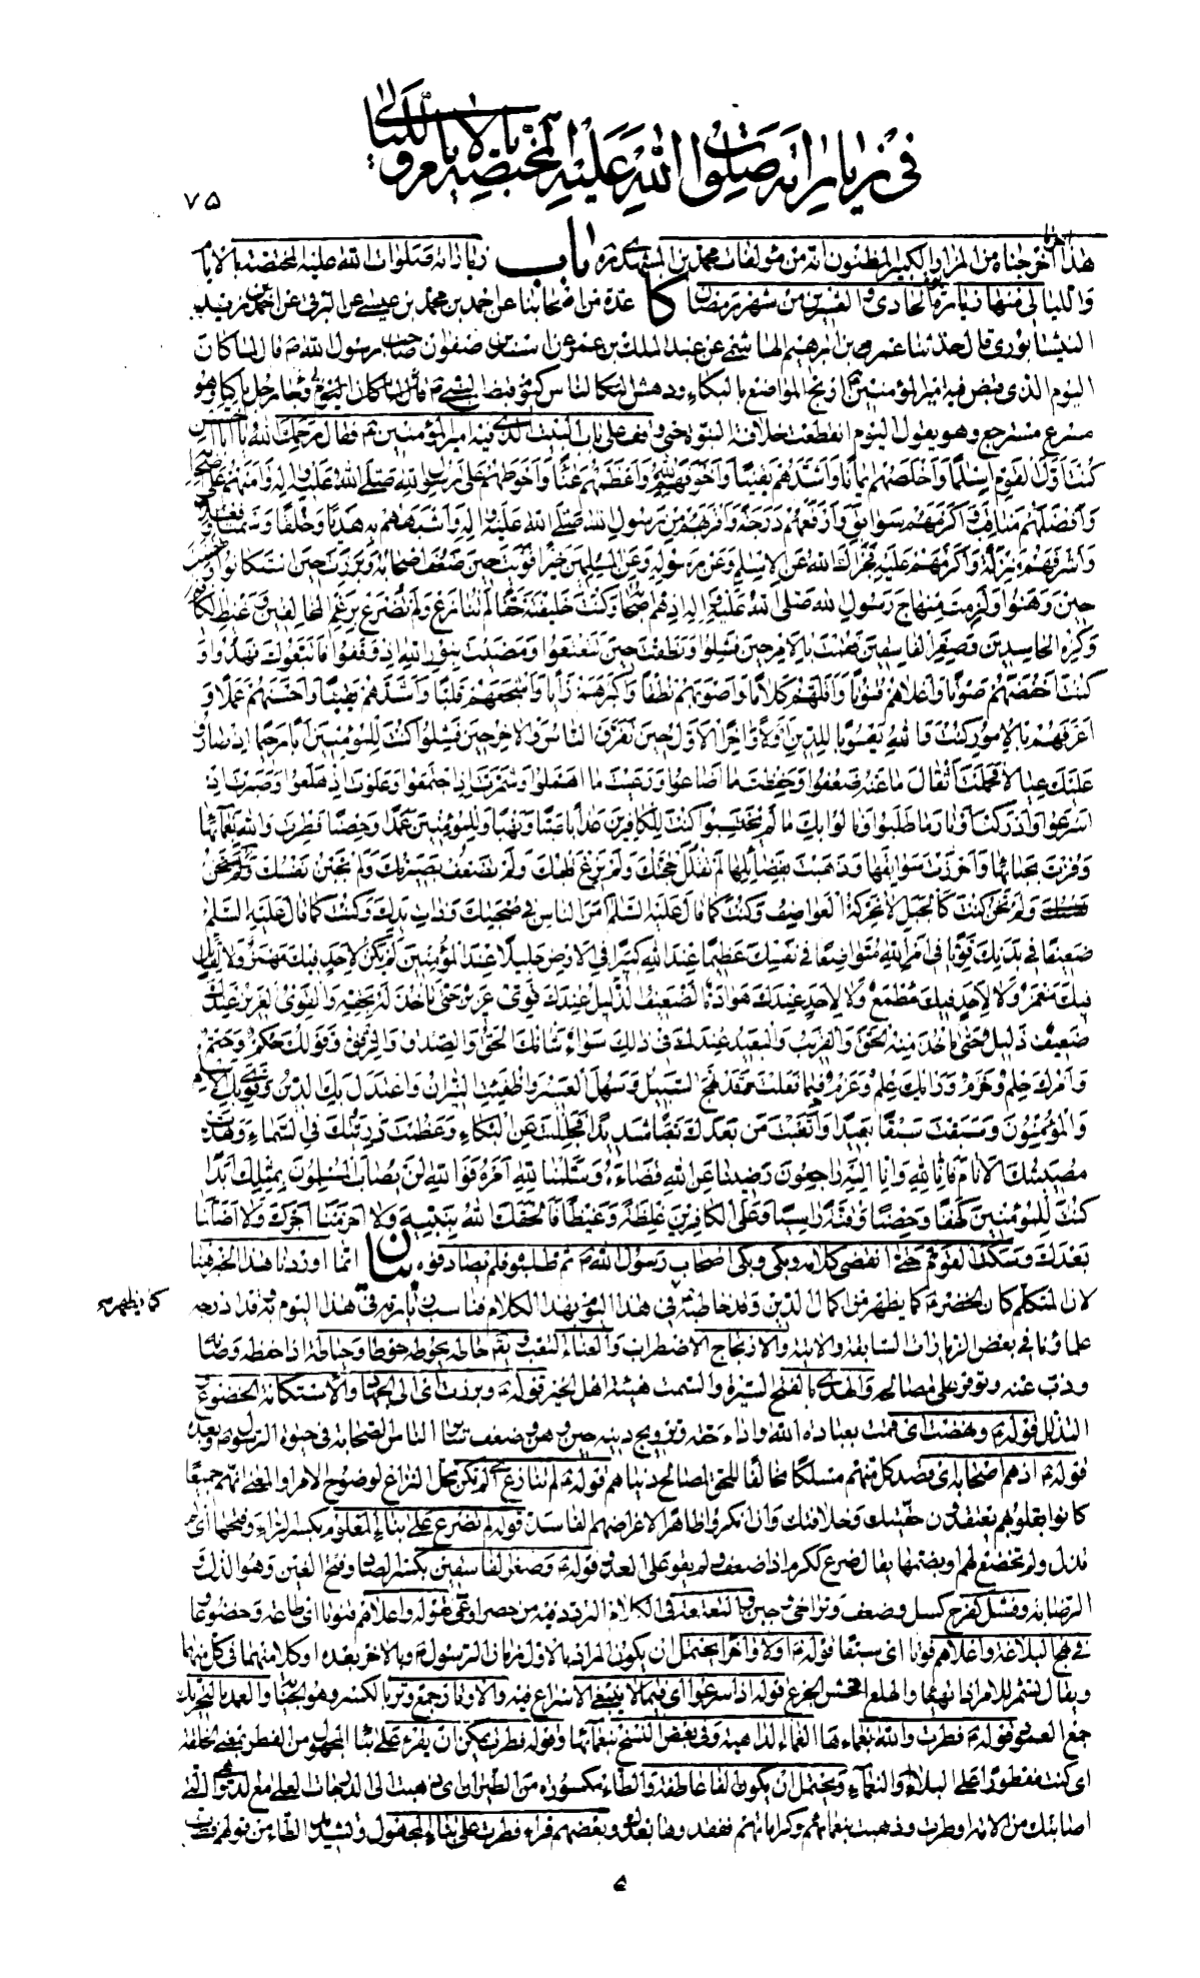 في زياراته صلوات الله عليه المختصة بالايام والليالي
٧٥
هذا آخر ما اخرجناه من المزار الكبير المظنون انه من مؤلفات محمد بن المشهدي ره باب زياراته صلوات الله عليه المختصة بالايام
والليالي منها زيارة يوم الحادي والعشرين من شهر رمضان كا عدة من اصحابنا عن احمد بن محمد بن عيسى عن البرقي عن احمد بن زيد
النيشابوري قال حدثنا عمر بن ابرهيم الهاشمي عن عبد الملك بن عمر عن اسيد بن صفوان صاحب رسول الله ص قال لما كان
اليوم الذي قبض فيه امير المؤمنين ع ارتج الموضع بالبكاء ودهش الناس كيوم قبض النبي ص وجاء رجل باكيا وهو
مسرع مسترجع وهو يقول اليوم انقطعت خلافة النبوة حتى وقف على باب البيت الذي فيه امير المؤمنين ع فقال رحمك الله يا ابا الحسن
كنت اول القوم اسلاما واخلصهم ايمانا واشدهم يقينا واخوفهم لله واعظمهم عناء واحوطهم على رسول الله صلى الله عليه واله وامنهم على اصحابه
وافضلهم مناقب واكرمهم سوابق وارفعهم درجة واقربهم من رسول الله صلى الله عليه واله واشبههم به هديا وخلقا وسمتا وفعلا
واشرفهم منزلة واكرمهم عليه فجزاك الله عن الاسلام وعن رسوله وعن المسلمين خيرا قويت حين ضعف اصحابه وبرزت حين استكانوا ونهضت
حين وهنوا ولزمت منهاج رسول الله صلى الله عليه واله اذ هم اصحابه وكنت خليفته حقا لم تنازع ولم تضرع برغم المنافقين وغيظ الكافرين
وكره الحاسدين وصغر الفاسقين فقمت بالامر حين فشلوا ونطقت حين تتعتعوا ومضيت بنور الله اذ وقفوا فاتبعوك فهدوا و
كنت اخفضهم صوتا واعلاهم قنوتا واقلهم كلاما واصوبهم نطقا واكبرهم رايا واشجعهم قلبا واشدهم يقينا واحسنهم عملا و
اعرفهم بالامور كنت والله يعسوبا للدين اولا واخرا الاول حين تفرق الناس والاخر حين فشلوا كنت للمؤمنين ابا رحيما اذ صاروا
عليك عيالا فحملت اثقال ما عنه ضعفوا وحفظت ما اضاعوا ورعيت ما اهملوا وشمرت اذ اجتمعوا وعلوت اذ هلعوا وصبرت اذ
اسرعوا وادركت اوتار ما طلبوا ونالوا بك ما لم يحتسبوا كنت للكافرين عذابا صبا ونهبا وللمؤمنين عمدا وحصنا فطرت والله بنعمائها
وفزت بحبائها واحرزت سوابقها وذهبت بفضائلها لم تفلل حجتك ولم يزغ قلبك ولم تضعف بصيرتك ولم تجبن نفسك ولم تخن
كنت كالجبل لا تحركه العواصف وكنت كما قال عليه السلام امن الناس في صحبتك وذات يدك وكنت كما قال عليه السلم
ضعيفا في بدنك قويا في امر الله متواضعا في نفسك عظيما عند الله كبيرا في الارض جليلا عند المؤمنين لم يكن لاحد فيك مهمز ولا لقائل
فيك مغمز ولا لاحد فيك مطمع ولا لاحد عندك هوادة الضعيف الذليل عندك قوي عزيز حتى تاخذ له بحقه والقوي العزيز عندك
ضعيف ذليل حتى تاخذ منه الحق والقريب والبعيد عندك في ذلك سواء شانك الحق والصدق والرفق وقولك حكم وحتم
وامرك حلم وحزم ورايك علم وعزم فيما فعلت وقد نهج السبيل وسهل العسير واطفئت النيران واعتدل بك الدين وقوي بك الاسلام
والمؤمنون وسبقت سبقا بعيدا واتعبت من بعدك تعبا شديدا فجللت عن البكاء وعظمت رزيتك في السماء وهدت
مصيبتك الانام فانا لله وانا اليه راجعون رضينا عن الله قضاءه وسلمنا لله امره فوالله لن يصاب المسلمون بمثلك ابدا
كنت للمؤمنين كهفا وحصنا وقنة راسيا وعلى الكافرين غلظة وغيظا فالحقك الله بنبيه ولا احرمنا اجرك ولا اضلنا
بعدك وسكت القوم حتى انقضى كلامه وبكى وبكى اصحاب رسول الله ص ثم طلبوه فلم يصادفوه بيان انما اوردنا هذا الخبر هنا
لان المتكلم كان الخضر ع كما يظهر من اكمال الدين وقد خاطبه ع في هذا اليوم بهذا الكلام فناسب زيارته في هذا اليوم به وقد اورده
كما يظهر
علماؤنا في بعض الزيارات السابقة والاتية والارتجاج الاضطراب والعناء التعب يقال حاطه يحوطه حوطا وحياطة اذا حفظه وصانه
وذب عنه وتوفر على مصالحه والهدي بالفتح السيرة والسمت هيئة اهل الخير قوله ع وبرزت اي الى الجهاد والاستكانة الخضوع
التذلل قوله ع ونهضت اي قمت بعبادة الله واداء حقه وترويج دينه حين وهن وضعف سائر الناس الصحابة في حيوة الرسول ص وبعده
قوله ع اذ هم اصحابه اي قصد كل منهم مسلكا مخالفا للحق لمصالح دنياهم قوله ع لم تنازع اي لم تكن محل النزاع لوضوح الامر او المعنى انهم جميعا
كانوا بقلوبهم يعتقدون حقيتك وخلافتك وان انكروا ظاهرا لاغراضهم الفاسدة قوله ع ولم تضرع على بناء المعلوم بكسر الراء وفتحها اي لم
تذل ولم تخضع لهم او بضمها يقال ضرع ككرم اذا ضعف ولم يقو على العدو قوله ع وصغر الفاسقين بكسر الصاد وفتح الغين وهو الذل
الرضا به وفشل كفرح كسل وضعف وتراخى وجبن والتعتعة في الكلام التردد فيه من حصر او عي قوله واعلاهم قنوتا اي طاعة وخضوعا و
في نهج البلاغة واعلاهم فوتا اي سبقا قوله ع اولا واخرا يحتمل ان يكون المراد بالاول زمان الرسول ص وبالاخر بعده او كلا منهما في كل منهما
ويقال شمر للامر اذا تهيأ والهلع افحش الجزع قوله اذ اسرعوا اي فيما لا ينبغي الاسراع فيه والاوتار جمع وتر بالكسر وهو الجناية والعمد بالتحريك
جمع العمود قوله ع فطرت والله بنعمائها النعماء لذاهبة وفي بعض النسخ بنعمائها وقوله فطرت يمكن ان يقرء على بناء المجهول من الفطر بمعنى الخلقة
اي كنت مفطورا على البلاء والنعماء ويحتمل ان يكون الفاء عاطفة والطاء مكسورة من الطيران اي ذهبت الى الدرجات العلى مع الدواهي التي
اصابتك من الامة او طرت وذهبت بنعمائهم وكراماتهم ففقدوها بعدك وبعضهم قراء فطرت على بناء المجهول وتشديد الطاء من قولهم فطرت